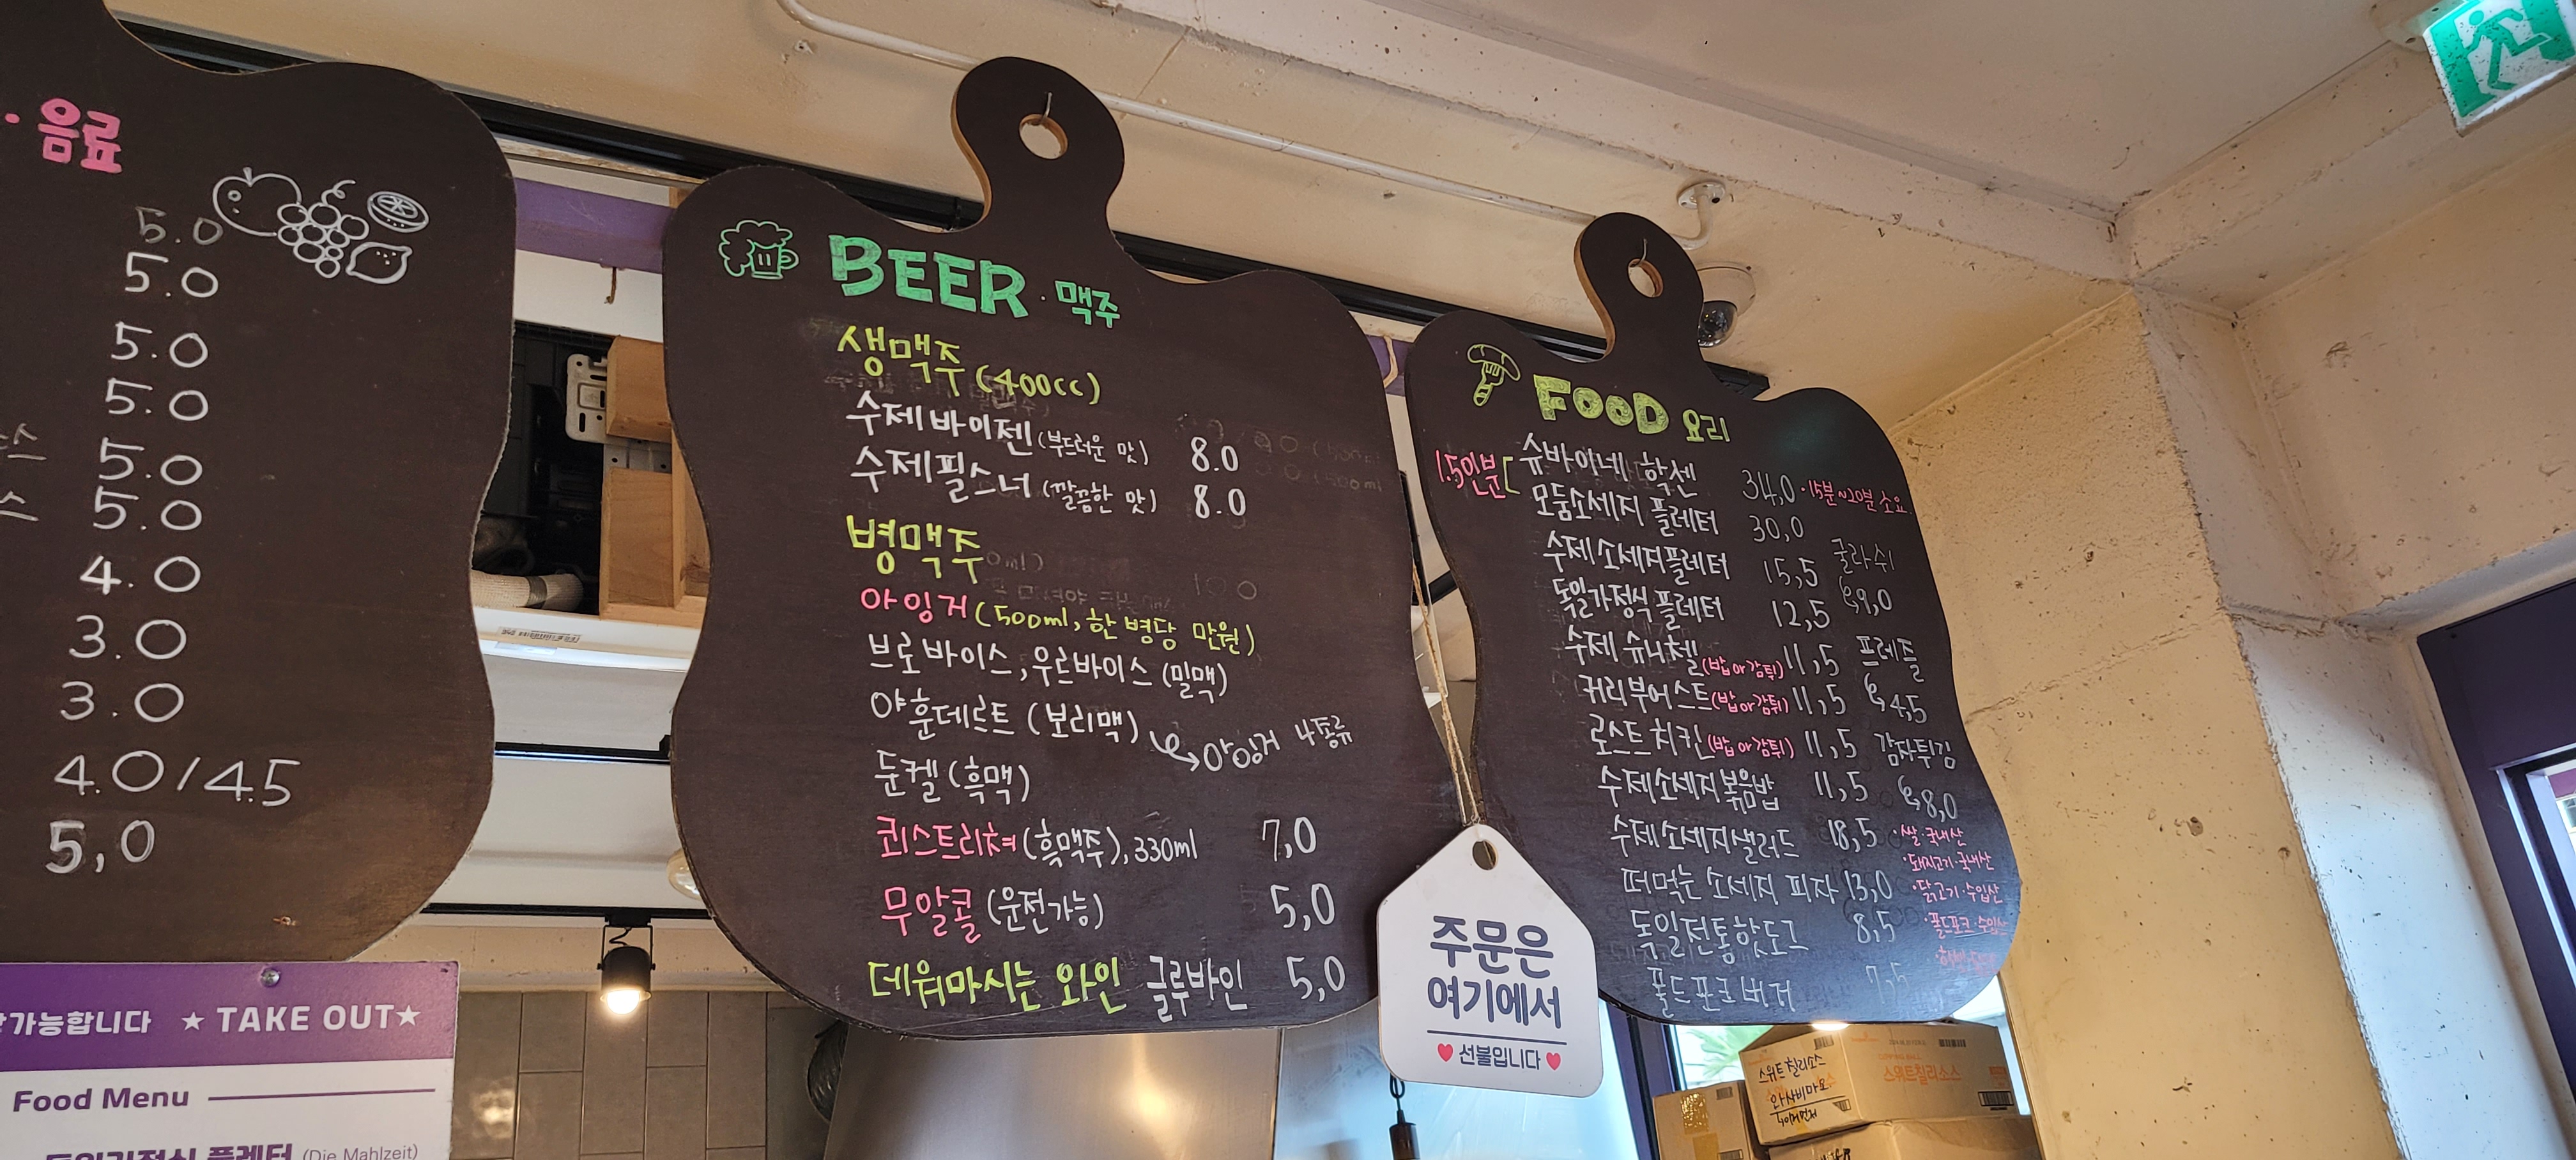 · 음료
5.0
5.0
5.0
5.0
5.0
5.0
4.0
3.0
3.0
4.0/4.5
5,0
가능합니다 ★ TAKE OUT★
Food Menu
독일가정식 플레터 (Die Mahlzeit)
BEER · 맥주
생맥주 (400cc)
수제 바이젠 (부드러운 맛) 8.0
수제 필스너 (깔끔한 맛) 8.0
병맥주
아잉거 (500ml, 한 병당 만원)
브로바이스, 우르바이스 (밀맥)
야훈데르트 (보리맥)
아잉거 4종류
둔켈 (흑맥)
쾨스트리쳐 (흑맥주), 330ml 7,0
무알콜 (운전가능) 5,0
데워마시는 와인 글루바인 5,0
FOOD 요리
1.5인분 [ 슈바이네 학센 34,0 ·15분~20분 소요
모둠소세지 플레터 30,0
수제 소세지플레터 15,5
독일가정식 플레터 12,5
수제 슈니첼 (밥 or 감튀) 11,5
커리부어스트 (밥 or 감튀) 11,5
로스트 치킨 (밥 or 감튀) 11,5
수제소세지볶음밥 11,5
수제소세지샐러드 18,5
떠먹는 소세지 피자 13,0
독일전통핫도그 8,5
풀드포크 버거 7,5
굴라쉬
9,0
프레즐
4,5
감자튀김
8,0
·쌀·국내산
·돼지고기·국내산
·닭고기·수입산
·풀드포크·수입산
주문은
여기에서
♥ 선불입니다 ♥
스위트칠리소스
와사비마요
스위트칠리소스